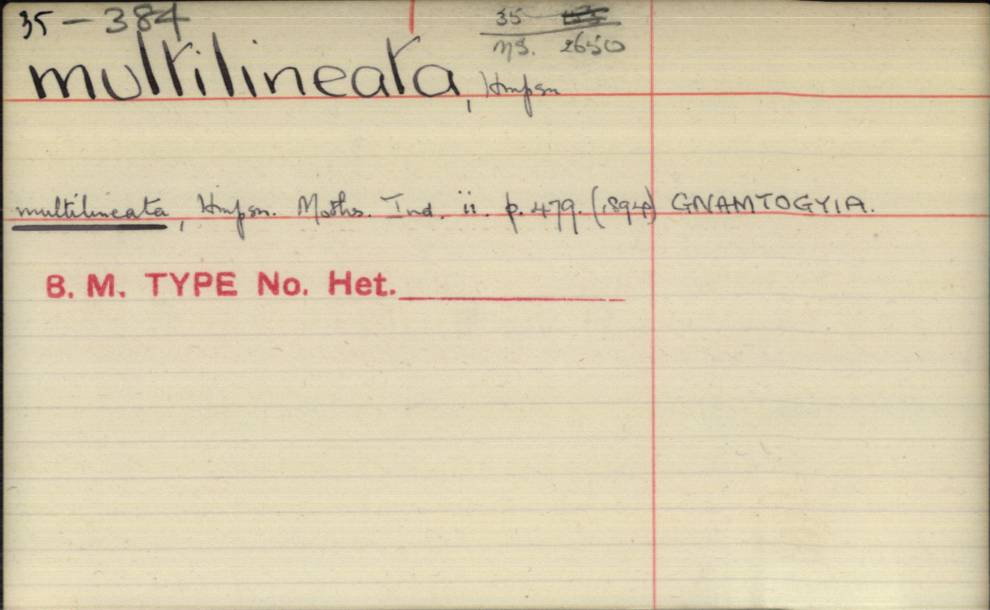 35-384
35
MS. 2650
multilineata, Hmpsn
multilineata, Hmpsn. Moths. Ind. ii. p. 479. (1894) GNAMTOGYIA.
B. M. TYPE No. Het.